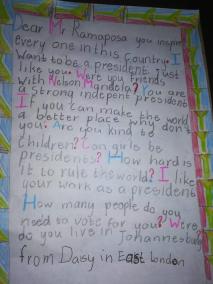 Dear Mr Ramaposa you inspire
every one in this country. I
want to be a president just
like you. Were you friends
with Nelson Mandela? You are
a strong indepent president
If you can make the world
a better place why don't
you. Are you kind to
children? Can girls be
presidents? How hard is
it to rule the world? I like
your work as a president
How many people do you
need to vote for you? Were
do you live in Johannesburg?
from Daisy in East London